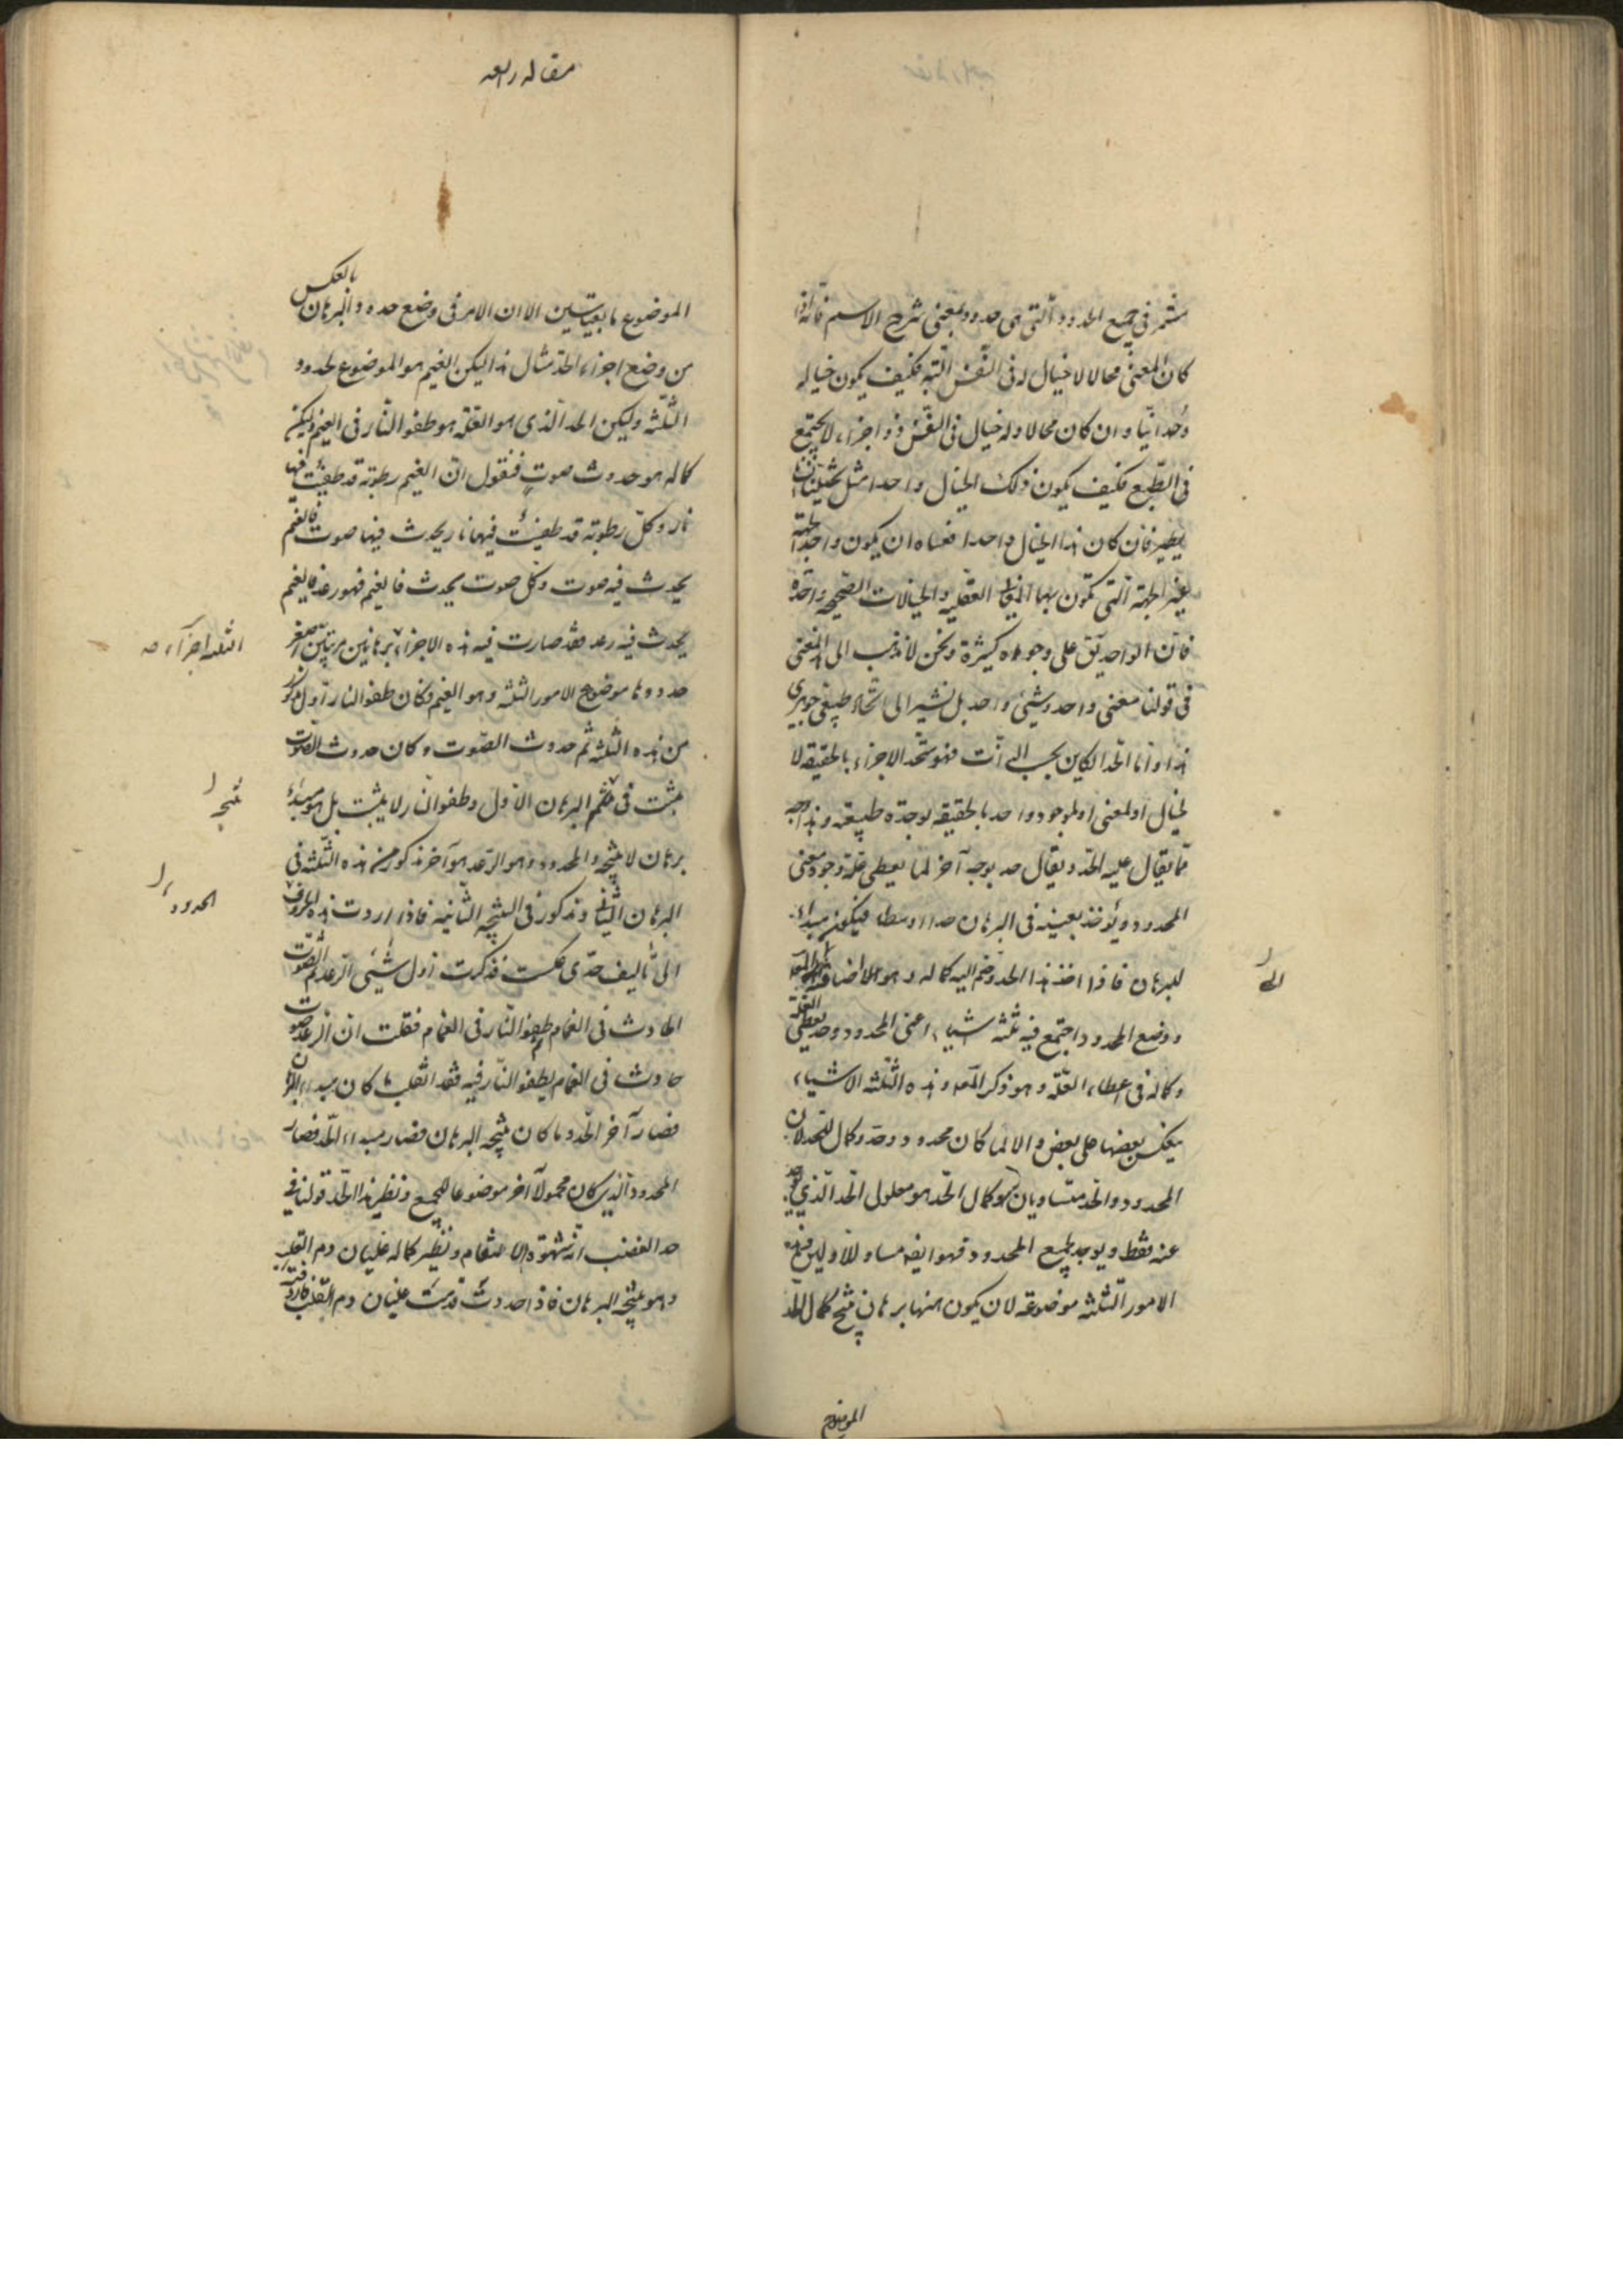 يستمر في جميع الحدود التي هي حدود بمعنى شرح الاسم فانه اذا
كان المعنى محالا لا خيال له في النفس البتة فكيف يكون خياله
وحدانيا وان كان محالا وله خيال في النفس ذو اجزاء لا يجتمع
في الطبع فكيف يكون ذلك الخيال واحدا مثل تخيلنا
يطير فان كان هذا الخيال واحدا فعساه ان يكون واحدا
بغير الجهة التي تكون بها العقلية والخيالات الصحيحة واحدة
فان الواحد يق على وجوه كثيرة ونحن لا نذهب الى المعنى
في قولنا معنى واحد وشيئ واحد بل نشير الى اتحاد طبيعي جوهري
هذا واما الحد الكاين بحسب الذات فهو متحد الاجزاء بالحقيقة لا
لخيال او لمعنى او لموجود واحد بالحقيقة لوحدة طبيعته وهذا وجه
مما يقال عليه الحد ويقال حد بوجه آخر لما يعطى علة وجود معنى
المحدود ويؤخذ بعينه في البرهان حدا اوسطا فيكون مبداء
للبرهان فاذا اخذ هذا الحد وضم اليه كماله وهو الاضافة
الى
ووضع المحدود اجتمع فيه ثلثة اشياء اعنى المحدود وحد يعطى العلة
وكماله في اعطاء العلة وهو ذكر المعلول وهذه الثلثة الاشياء
ينعكس بعضها على بعض والا لما كان محدود وحد وكمال للحد لان
المحدود والحد متساويان وكمال الحد هو معلول الحد الذي يوجد
عنه فقط ويوجد لجميع المحدود فهو ايضه مساو للاولين فهذه
الامور الثلثة موضوعة لان يكون منها برهان ينتج كمال الحد
الموضوع
مقاله رابعه
الموضوع ما بقياسين الا ان الامر في وضع حدود البرهان بالعكس
من وضع اجزاء الحد مثال هذا ليكن الغيم هو الموضوع للحدود
الثلثة وليكن الحد الذي هو العلة هو طفو النار في الغيم وليكن
كماله هو حدوث صوت فنقول ان الغيم رطوبة قد طفئت فيها
نار وكل رطوبة قد طفئت فيها نار يحدث فيها صوت فالغيم
يحدث فيه صوت وكل صوت يحدث في الغيم فهو رعد فالغيم
يحدث فيه رعد فقد صارت فيه هذه الاجزاء برهانين مرتبين اصغر
الثلثه اجزآء صه
حدودها موضوع الامور الثلثة وهو الغيم وكان طفو النار اول مذكور
من هذه الثلثة ثم حدوث الصوت وكان حدوث الصوت
يثبت في البرهان الاول وطفو النار لا يثبت بل هو مبداء
نتيجه
برهان لا نتيجة والمحدود وهو الرعد هو آخر مذكور من هذه الثلثة في
البرهان الثاني ومذكور في النتيجة الثانية فاذا اردت هذه
الحدود
الى تأليف حدى عكست فذكرت اول شيئ الرعد ثم الصوت
الحادث في الغمام ثم طفو النار في الغمام فقلت ان الرعد صوت
حادث في الغمام لطفو النار فيه فقد انقلب ما كان مبداء البرهان
فصار آخر الحد وما كان نتيجة البرهان فصار مبداء الحد فصار
المحدود الذي كان محمولا آخر موضوعا للجميع ونظير هذا الحد قولنا في
حد الغضب انه شهوة الانتقام ونظير كماله غليان دم القلب
وهو نتيجة البرهان فاذا حدوث قدمت غليان دم القلب